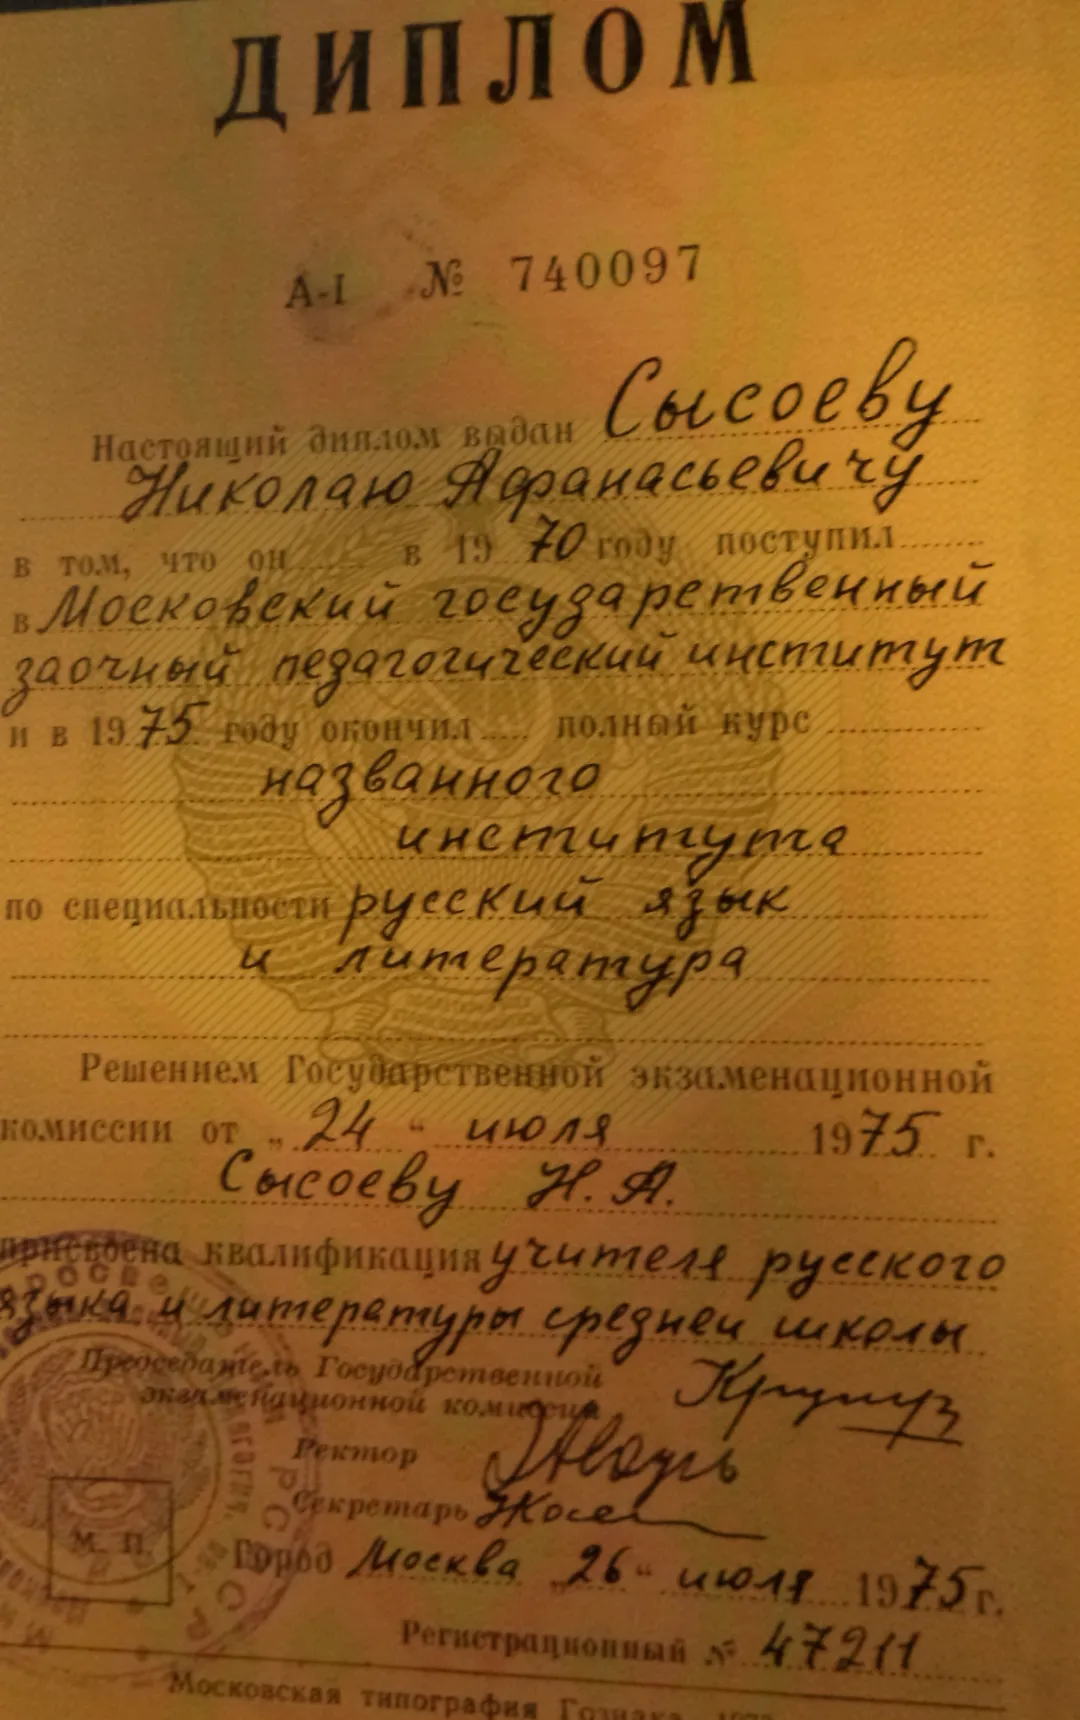 ДИПЛОМ
А-I № 740097
Настоящий диплом выдан Сысоеву
Николаю Афанасьевичу
в том, что он в 1970 году поступил
в Московский государственный
заочный педагогический институт
и в 1975 году окончил полный курс
названного
института
по специальности русский язык
и литература
Решением Государственной экзаменационной
комиссии от „24“ июля 1975 г.
Сысоеву Н. А.
присвоена квалификация учителя русского
языка и литературы средней школы
Председатель Государственной
экзаменационной комиссии
Ректор
Секретарь
М. П.
Город Москва „26“ июля 1975 г.
Регистрационный № 47211
Московская типография Гознака